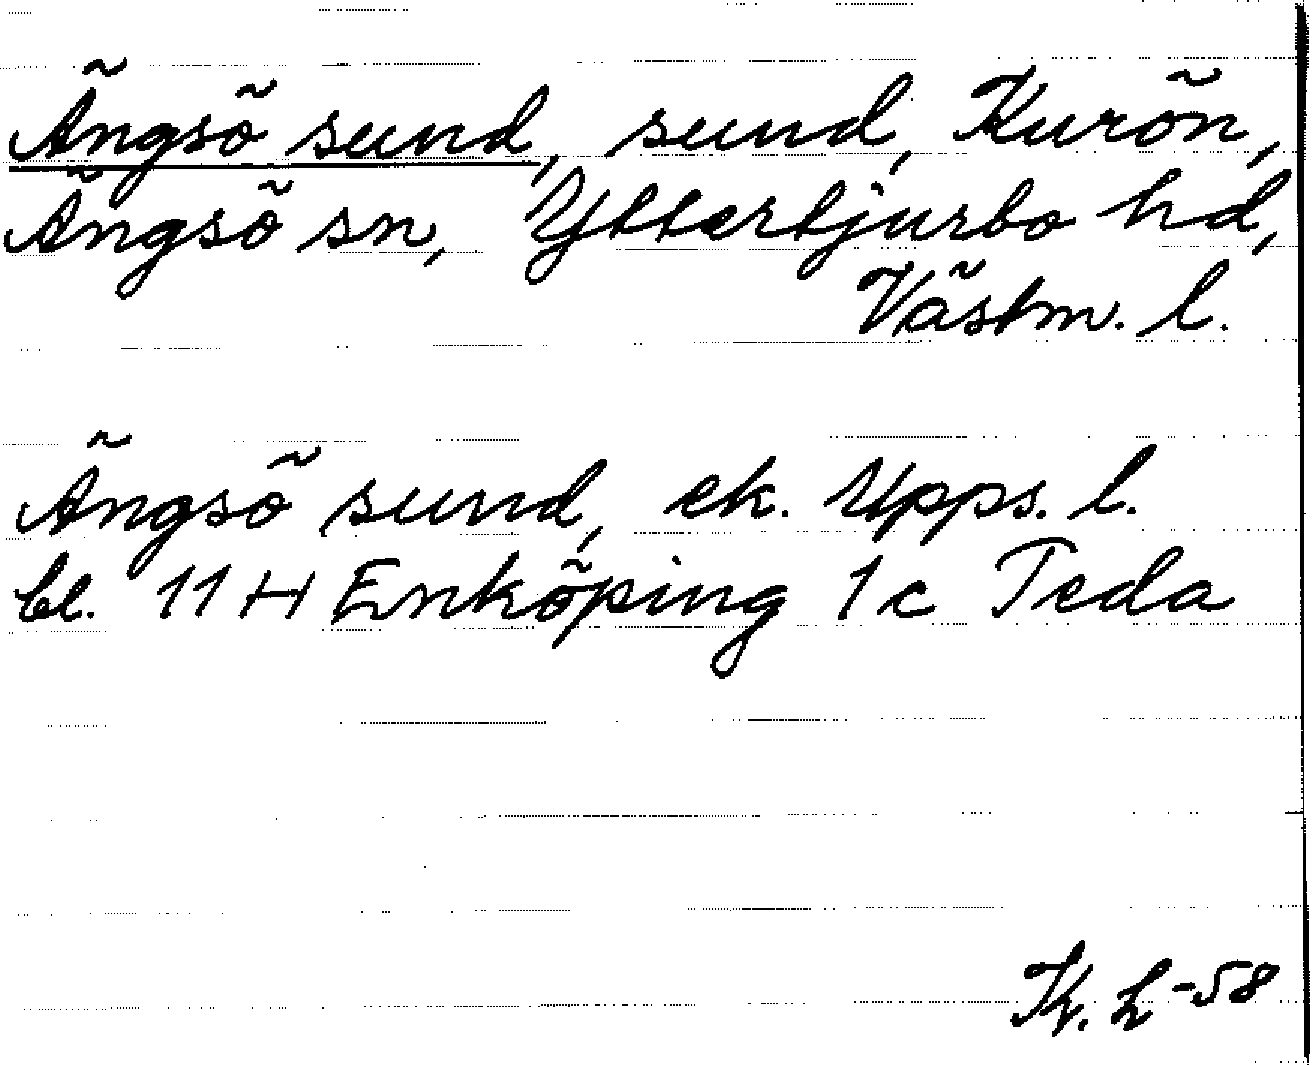 Ängsö sund, sund, Kurön,
Ängsö sn, Yttertjurbo hd,
Västm. l.
Ängsö sund, ek. Upps. l.
bl. 11 H Enköping 1 c Teda
K. L -58